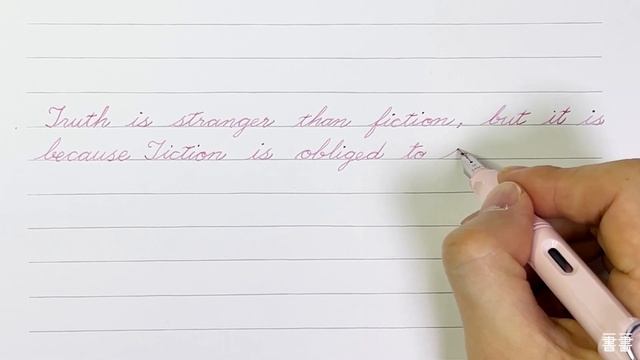 Truth is stranger than fiction, but it is
because Fiction is obliged to